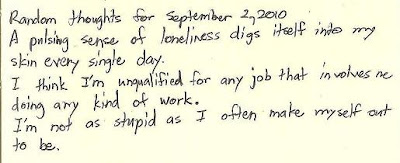 Random thoughts for September 2, 2010
A pulsing sense of loneliness digs itself into my
skin every single day.
I think I'm unqualified for any job that involves me
doing any kind of work.
I'm not as stupid as I often make myself out
to be.